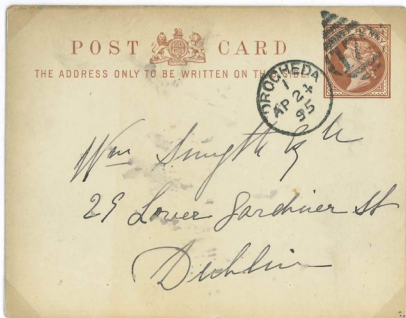 POST CARD
THE ADDRESS ONLY TO BE WRITTEN ON THIS SIDE
DROGHEDA
1
AP 24
95
Wm Smyth Esq
29 Lower Gardiner St
Dublin